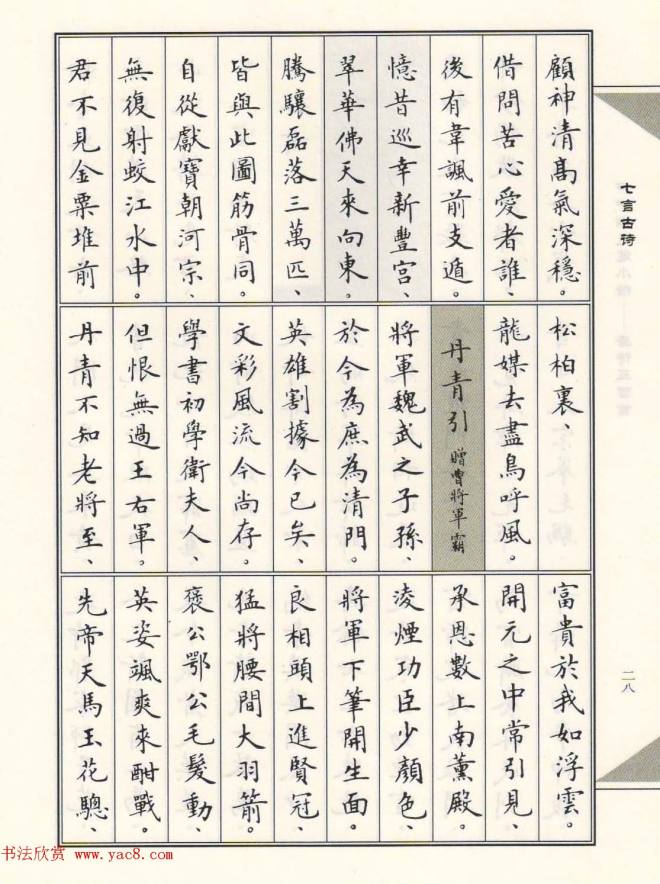 顧神清高氣深穩。
借問苦心愛者誰、
後有韋諷前支遁。
憶昔巡幸新豐宮、
翠華佛天來向東。
騰驤磊落三萬匹、
皆與此圖筋骨同。
自從獻寶朝河宗、
無復射蛟江水中。
君不見金粟堆前
松柏裏、
龍媒去盡鳥呼風。
丹青引 贈曹將軍霸
將軍魏武之子孫、
於今為庶為清門。
英雄割據今已矣、
文彩風流今尚存。
學書初學衛夫人、
但恨無過王右軍。
丹青不知老將至、
富貴於我如浮雲。
開元之中常引見、
承恩數上南薰殿。
淩煙功臣少顏色、
將軍下筆開生面。
良相頭上進賢冠、
猛將腰間大羽箭。
褒公鄂公毛髮動、
英姿颯爽來酣戰。
先帝天馬玉花驄、
七言古诗
二八
书法欣赏 www.yac8.com